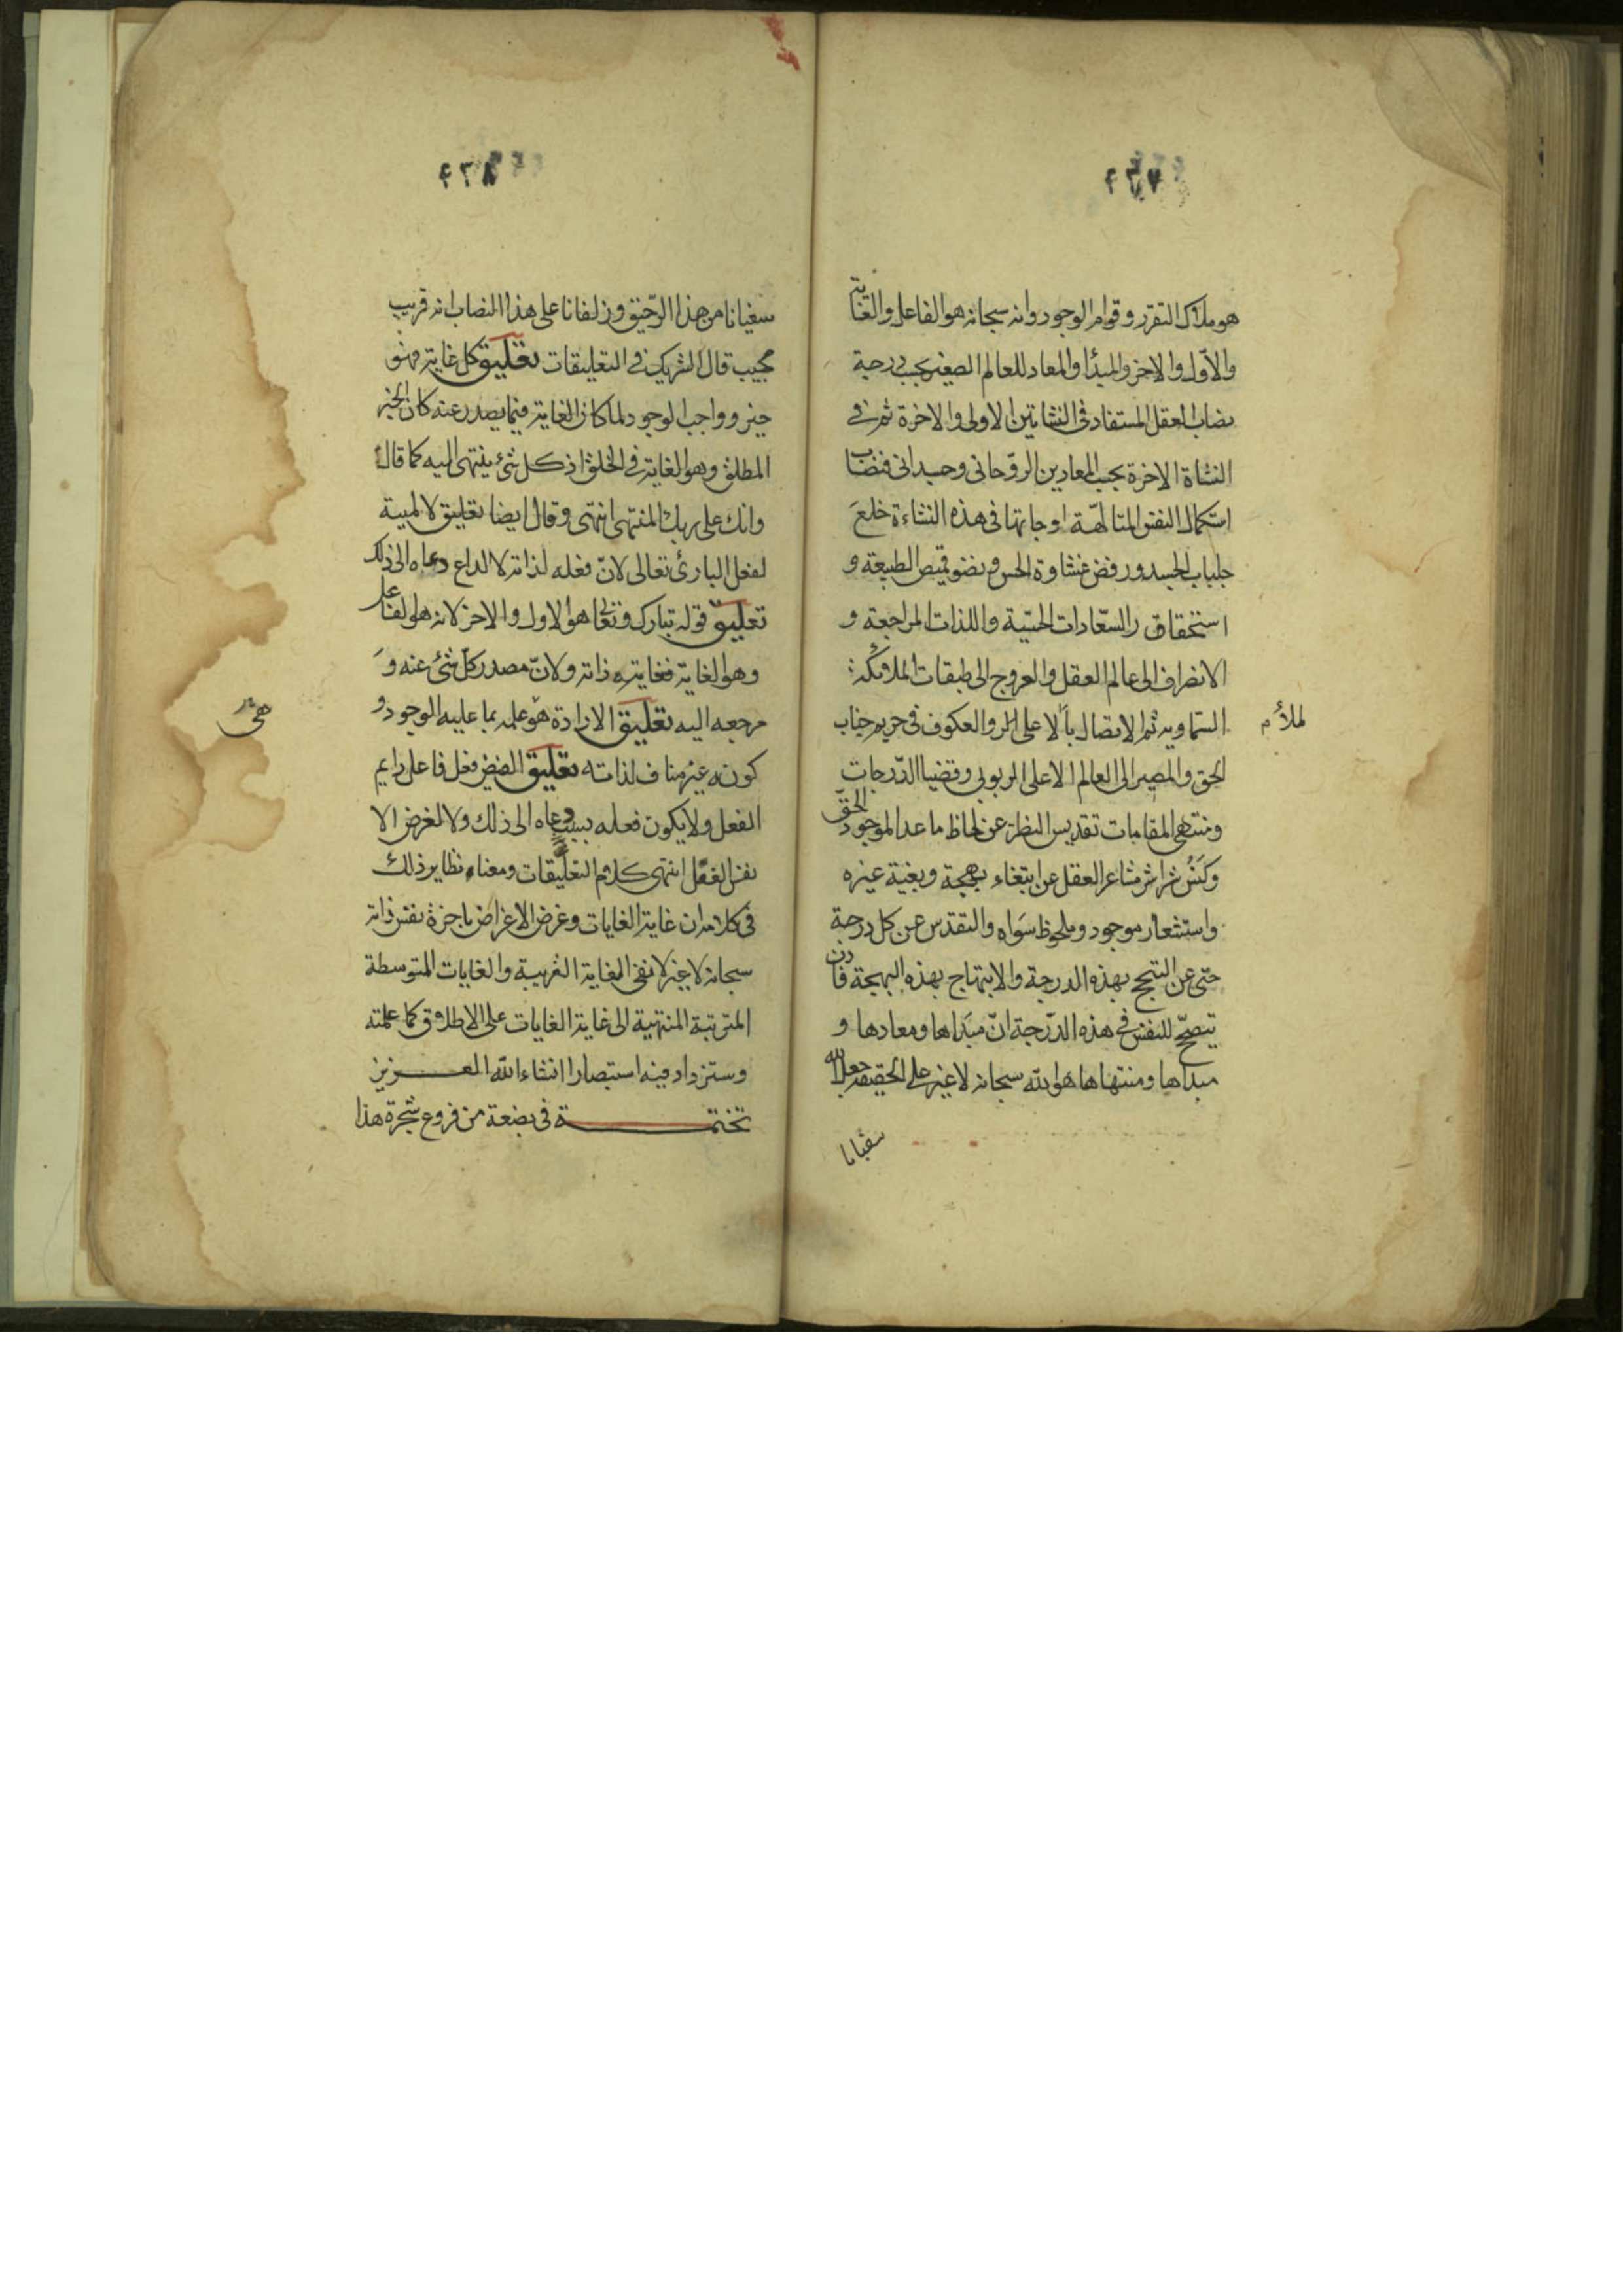 هو ملاك التقرر وقوام الوجود وانه سبحانه هو الفاعل والغاية
والاول والاخر والمبدأ والمعاد للعالم الصغير بحسب درجة
نصاب العقل المستفاد في النشاتين الاولى والاخرة ثم في
النشاة الاخرة بحسب المعادين الروحاني وجسداني فنصاب
استكمال النفس المتالهة اوجاتها في هذه النشاءة خلع
جلباب الجسد ورفض غشاوة الحس ونضو قميص الطبيعة و
استحقار السعادات الحسية واللذات المزاجية و
الانصراف الى عالم العقل والعروج الى طبقات الملائكة
السماوية ثم الاتصال بالاعلى والعكوف في حريم جناب
للملأ م
الحق والمصير الى العالم الاعلى الربوبي وقضيا الدرجات
ومنتهى المقامات تقديس النظر عن لحاظ ما عدا الموجود الحق
وكنس شراشر مشاعر العقل عن ابتغاء بهجة وبغية غيره
واستشعار موجود وملحوظ سواه والتقدس عن كل درجة
حتى عن التبجح بهذه الدرجة والابتهاج بهذه البهجة فاذن
يتصحح للنفس في هذه الدرجة ان مبداها ومعادها و
مبداها ومنتهاها هو الله سبحانه لا غير على الحقيقة جعل الله
سقيانا
سقيانا من هذا الرحيق وزلفانا على هذا النصاب انه قريب
مجيب قال الشريك في التعليقات تعليق كل غاية فهو
خير وواجب الوجود لما كان الغاية فيما يصدر عنه كان الخير
المطلق وهو الغاية في الخلق اذ كل شيء ينتهي اليه كما قال
وان على ربك المنتهى انتهى وقال ايضا تعليق لا لمية
لفعل البارئ تعالى لان فعله لذاته لا لداع دعاه الى ذلك
تعليق قوله تبارك وتعالى هو الاول والاخر لانه هو الفاعل
وهو الغاية فغايته ذاته ولان مصدر كل شيء عنه و
مرجعه اليه تعليق الارادة هو علمه بما عليه الوجود و
كونه غير مناف لذاته تعليق الفيض فعل فاعل دايم
الفعل ولا يكون فعله بسبب دعاه الى ذلك ولا لغرض الا
نفس الفعل انتهى كلام التعليقات ومعناه نظاير ذلك
في كلامه ان غاية الغايات وغرض الاغراض باخرة نفس ذاته
سبحانه لا غير لا نفي الغاية القريبة والغايات المتوسطة
المترتبة المنتهية الى غاية الغايات على الاطلاق كما علمته
وستزداد فيه استبصارا انشاء الله العزيز
تختمة في بضعة من فروع شجرة هذا